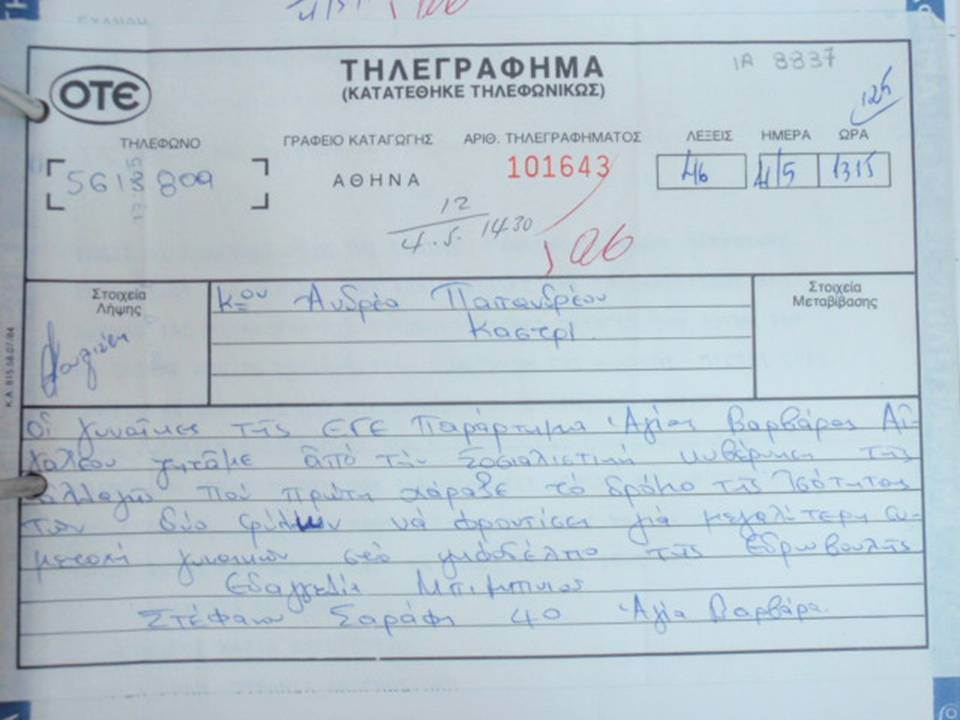 ΟΤΕ
ΤΗΛΕΓΡΑΦΗΜΑ
(ΚΑΤΑΤΕΘΗΚΕ ΤΗΛΕΦΩΝΙΚΩΣ)
ΙΑ 8837
125
ΤΗΛΕΦΩΝΟ
ΓΡΑΦΕΙΟ ΚΑΤΑΓΩΓΗΣ
ΑΡΙΘ. ΤΗΛΕΓΡΑΦΗΜΑΤΟΣ
ΛΕΞΕΙΣ
ΗΜΕΡΑ
ΩΡΑ
5613809
ΑΘΗΝΑ
101643
46
4/5
1315
12
4.5. 1430
Στοιχεία
Λήψης
κ=ου Ανδρέα Παπανδρέου
Καστρί.
Στοιχεία
Μεταβίβασης
Κ.Α. 815.58.07/84
Οἱ γυναῖκες τῆς ΕΓΕ Παράρτημα Ἁγίας Βαρβάρας Αἰ-
γάλεου ζητᾶμε ἀπό τήν Σοσιαλιστική κυβέρνηση τῆς
ἀλλαγῆς πού πρώτη χάραξε τό δρόμο τῆς Ἰσότητας
τῶν δύο φύλων νά φροντίσει γιά μεγαλύτερη συ-
μετοχή γυναικῶν στό ψηφοδέλτιο τῆς Εὐρωβουλῆς
Εὐαγγελία
Στέφανου Σαράφη 40 Ἁγία Βαρβάρα.